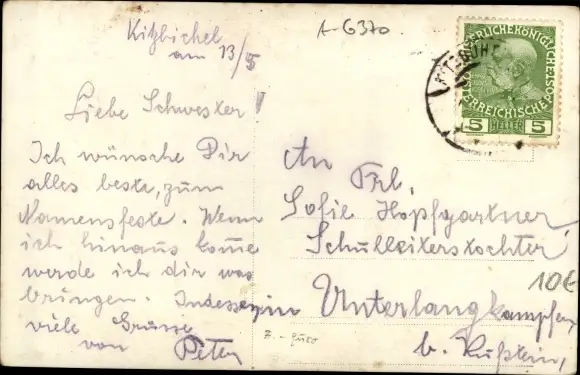 Kitzbichel
am 13/5
A-G370
Liebe Schwester!
Ich wünsche Dir
alles beste, zum
Namensfeste. Wenn
ich hinaus kome
werde ich dir was
bringen. Indessen
viele Grüsse
von Peter
An Frl,
Sofie Hopfgartner
Schulleiterstochter
in Unterlangkampfen
b. Kufstein,
10€
5 HELLER 5